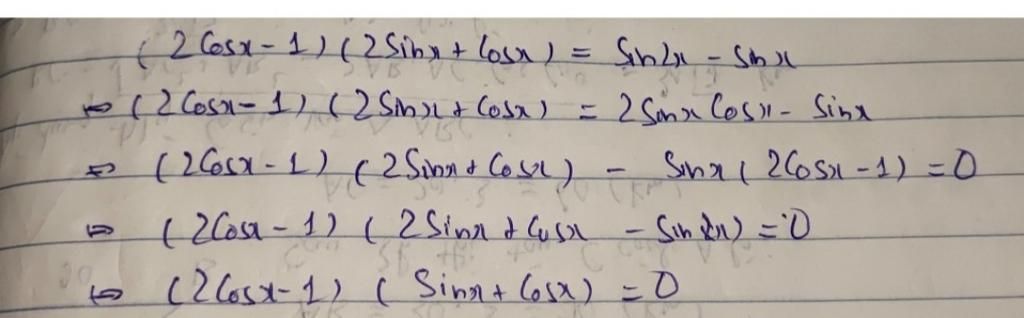 (2Cosx-1)(2Sinx+Cosx) = Sin2x - Sinx
⇔ (2Cosx-1)(2Sinx+Cosx) = 2SinxCosx - Sinx
⇔ (2Cosx-1)(2Sinx+Cosx) - Sinx(2Cosx-1)=0
⇔ (2Cosx-1)(2Sinx+Cosx - Sinx)=0
⇔ (2Cosx-1)(Sinx+Cosx)=0